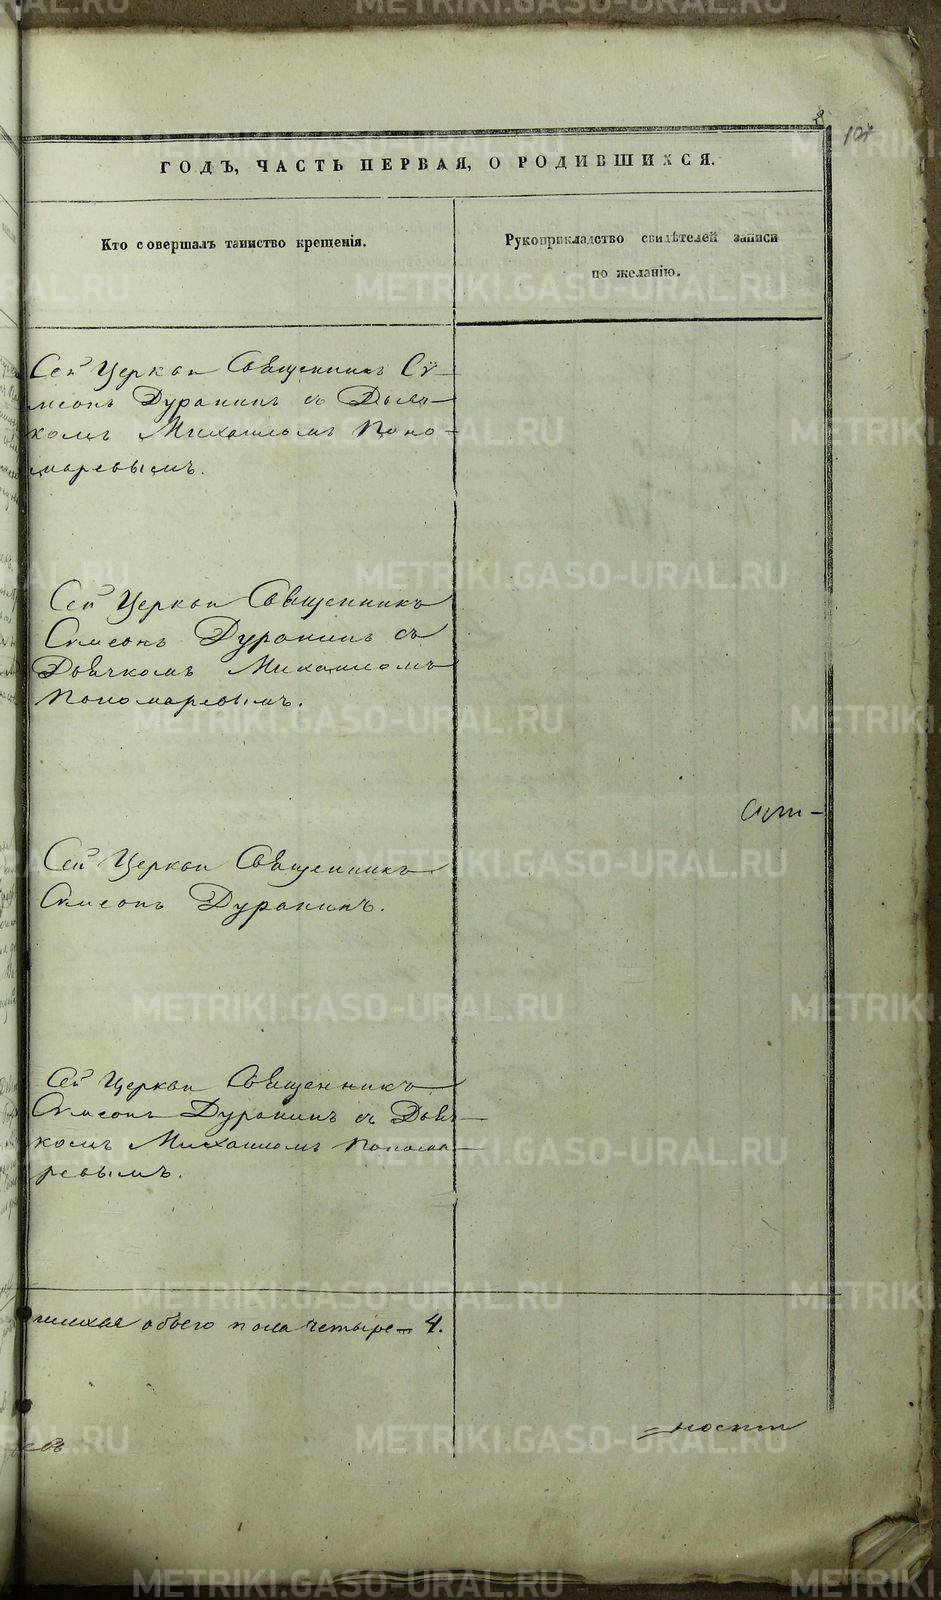 ГОДЪ, ЧАСТЬ ПЕРВАЯ, О РОДИВШИХСЯ.
Кто совершалъ таинство крещенія.
Рукоприкладство свидѣтелей записи
по желанію.
Сей Церкви Священникъ Сѵ-
меонъ Дуранинъ съ Дьяч-
комъ Михаиломъ Поно-
маревымъ.
Сей Церкви Священникъ
Сѵмеонъ Дуранинъ съ
Дьячкомъ Михаиломъ
Пономаревымъ.
Сей Церкви Священникъ
Сѵмеонъ Дуранинъ.
Сей Церкви Священникъ
Сѵмеонъ Дуранинъ съ Дьяч-
комъ Михаиломъ Понома-
ревымъ.
обоего пола четыре - 4.
METRIKI.GASO-URAL.RU